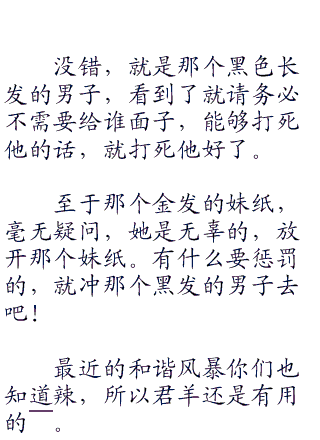 没错，就是那个黑色长
发的男子，看到了就请务必
不需要给谁面子，能够打死
他的话，就打死他好了。
至于那个金发的妹纸，
毫无疑问，她是无辜的，放
开那个妹纸。有什么要惩罚
的，就冲那个黑发的男子去
吧！
最近的和谐风暴你们也
知道辣，所以君羊还是有用
的__。